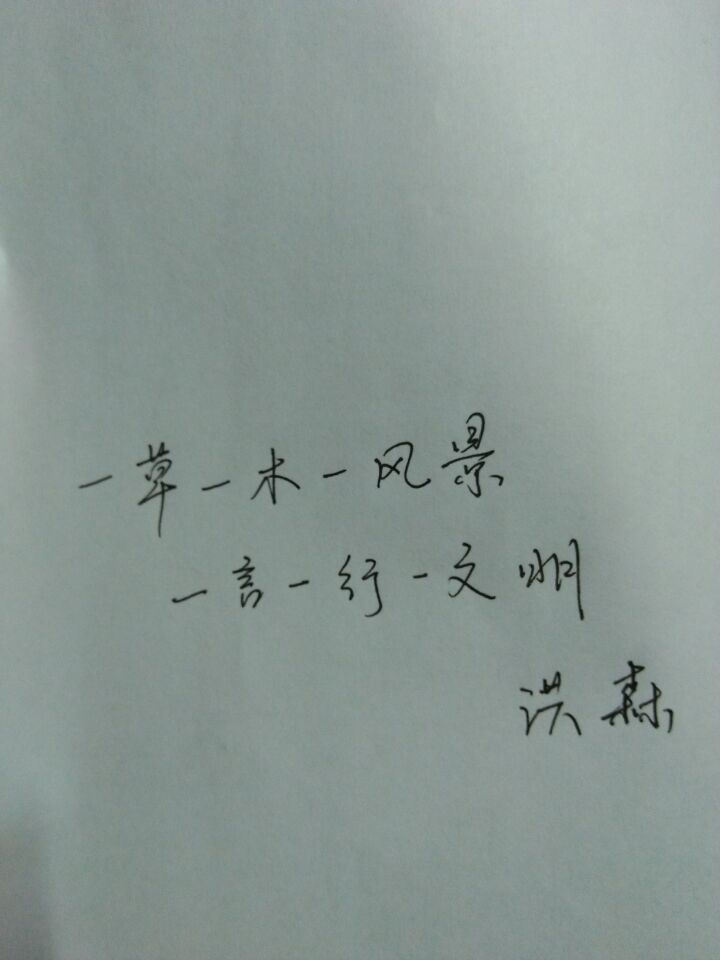 一草一木一风景
一言一行一文明
洪森